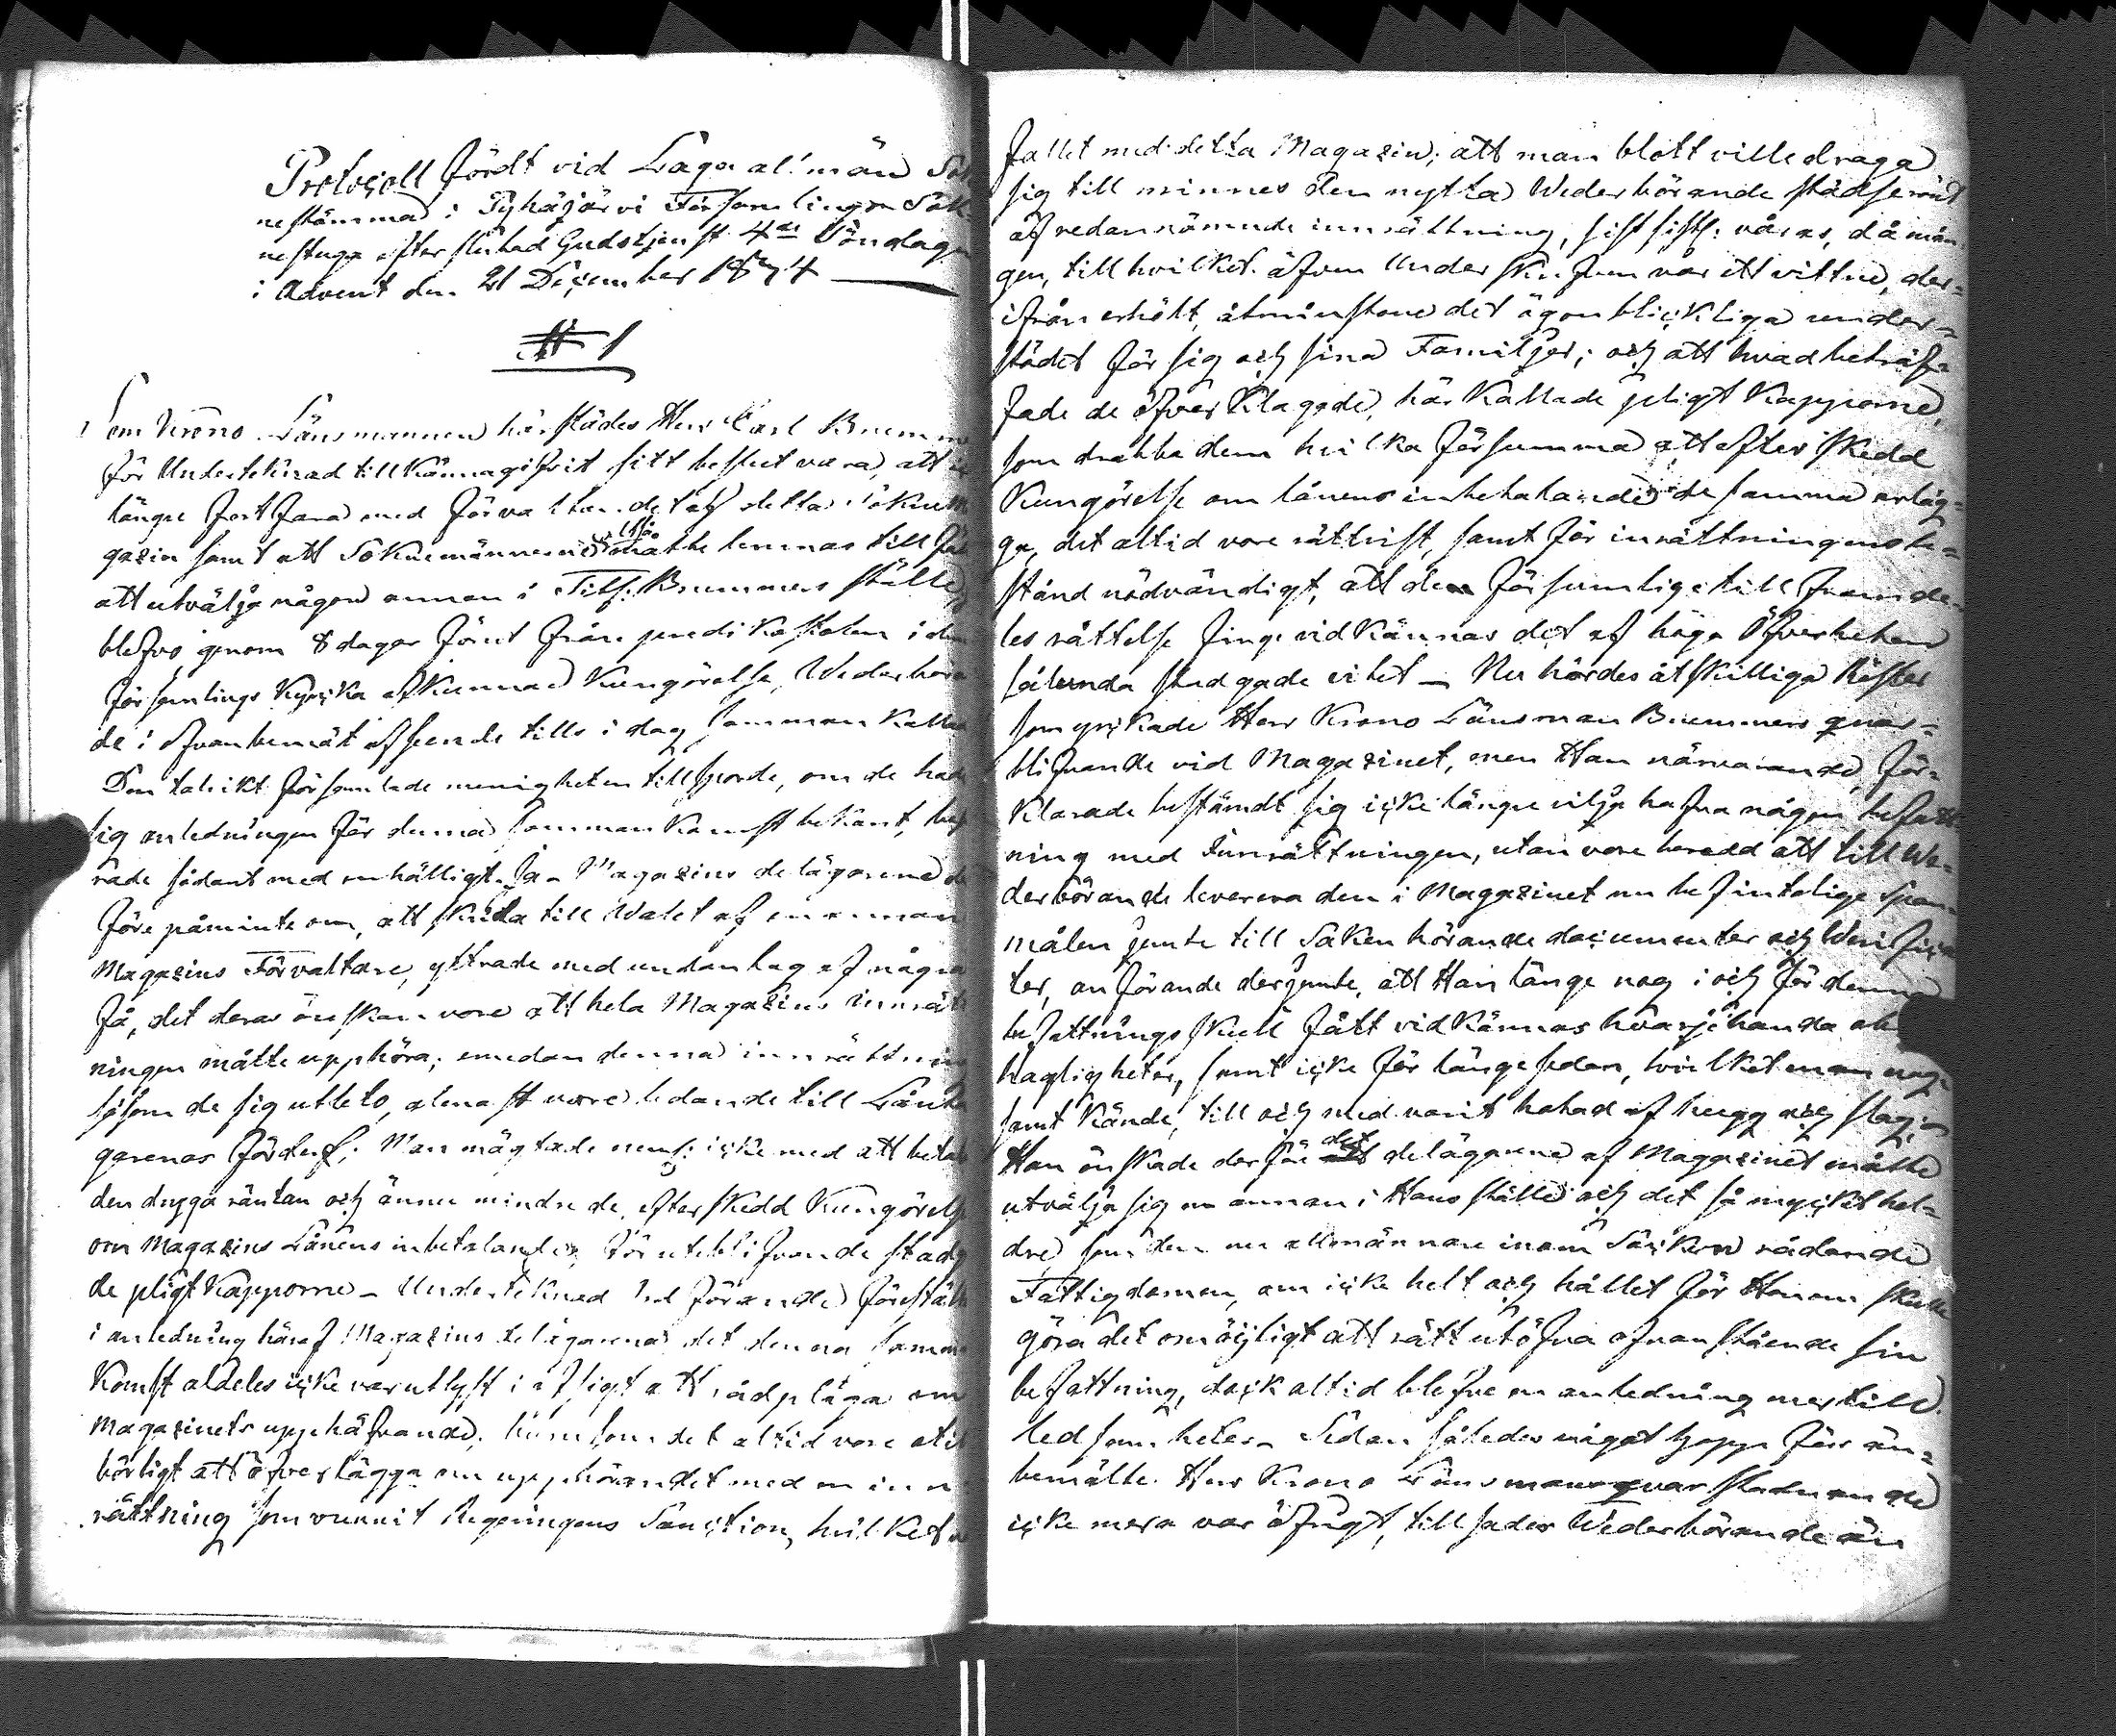 Protocoll fördt vid Laga allmän Sok
nestämma i Pyhäjärvi Församlings Sok-
nestuga efter slutad Gudstjenst 4de Söndagen
i Advent den 21 December 1834
§ 1
Som Krono Länsmannen härstädes Herr Carl Brummer
för Undertecknad tillkännagifvit sitt beslut vara, att ej
längre fortfara med förvaltandet af detta Sokne Ma
gazin samt att Soknemännerne måtte lemnas till
att utvälja någon annan i Titf: Brummers ställe,
blefvo genom 8 dagar förut från predikostolen i denna
församlings Kyrcka afkunnad Kungörelse, Wederböran
de i ofvanbemält afseende tills i dag samman kallade
Den talrikt församlade menigheten tillspordes, om de hade
sig anledningen för denna sammankomst bekant, besva
rade sådant med enhälligt Ja - Magazins delägarene der
före påminte om, att skrida till Walet af en annan
Magazins Förvaltare, yttrade med undantag af några
få, det deras önskan vore att hela Magazins innrätt
ningen måtte upphöra; emedan denna innrättning
såsom de sig utleto, alenast vore ledande till Lånta
garenas förderf; Man mägtade neml: icke med att betala
den dryga räntan och ännu mindre de, efter skedd Kungörelse
om Magazins Lånens inbetalande, för uteblifvande stadga
de pligt Kapporne - Undertecknad Ordförande förestälte
i anledning häraf Magazins delägarena det denna samman
komst aldeles icke var utlyst i afsigt att rådpläga om
Magazinets upphäfvande, häremsom det altid vore otill
börligt att öfverlägga om upphörandet med en inn
rättning som vunnit Regeringens Sanction, hvilket
fallet med detta Magazin; att man blott ville draga
sig till minnes den nytta Wederbörande städse rönt
af redannämnde innrättning, sist sistl: våras, då mån
gen, till hvilket äfven Underskrifven var ett vittne, der-
ifrån erhölt, åtminstone det ögonblickliga under-
stödet för sig och sina Familjer; och att hvad beträf-
fade de öfverklagade, här Kallade pligt Kapporne,
som drabba dem hvilka försumma att efter skedd
Kungörelse om lånens inbetalande desamma erläg-
ga, det altid vore rättvist, samt för inrättningens be-
stånd nödvändigt, att den försumlige till framde-
les rättelse finge vidkännas det af höga Öfverheten
sålunda stadgade vitet - Nu hördes åtskilliga Röster
som yrckade Herr Krono Länsman Brummers quar-
blifvande vid Magazinet, men Han närvarande, för-
klarade bestämdt sig icke längre vilja hafva någon befatt
ning med Innrättningen, utan vore beredd att till We-
derbörande leverera den i Magazinet nu befinteliga Span-
målen jemte till Saken hörande documenter och Verifica
ter, anförande derjemte, att Han länge nog i och för denna
befattnings skull fått vidkännas hvarjehanda obe
hagligheter, samt icke för länge sedan, hvilket man nog
samt Kände, till och med varit hotad af hugg och slag;
Han önskade derföre det delägarene af Magazinet måtte
utvälja sig en annan i Hans ställe och det så mycket hel-
dre, som den nu allmännare inom Socknen rådande
Fattigdomen, om icke helt och hållet för Honom skulle
göra det omöjligt att rätt utöfva ofvanstående sin
befattning, dock altid blefve en anledning mer till
ledsamheter - Sedan således något hopp förr än-
bemälte Herr Krono Länsmans quarstadnande
icke mera var öfrigt, tillsades Wederbörande än